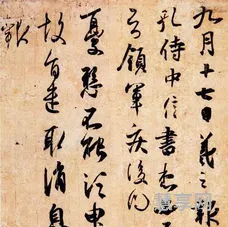 九月十七日羲之報
孔侍中信書想
領軍疾後問
憂懸不能須臾
故旨遣取消息
報